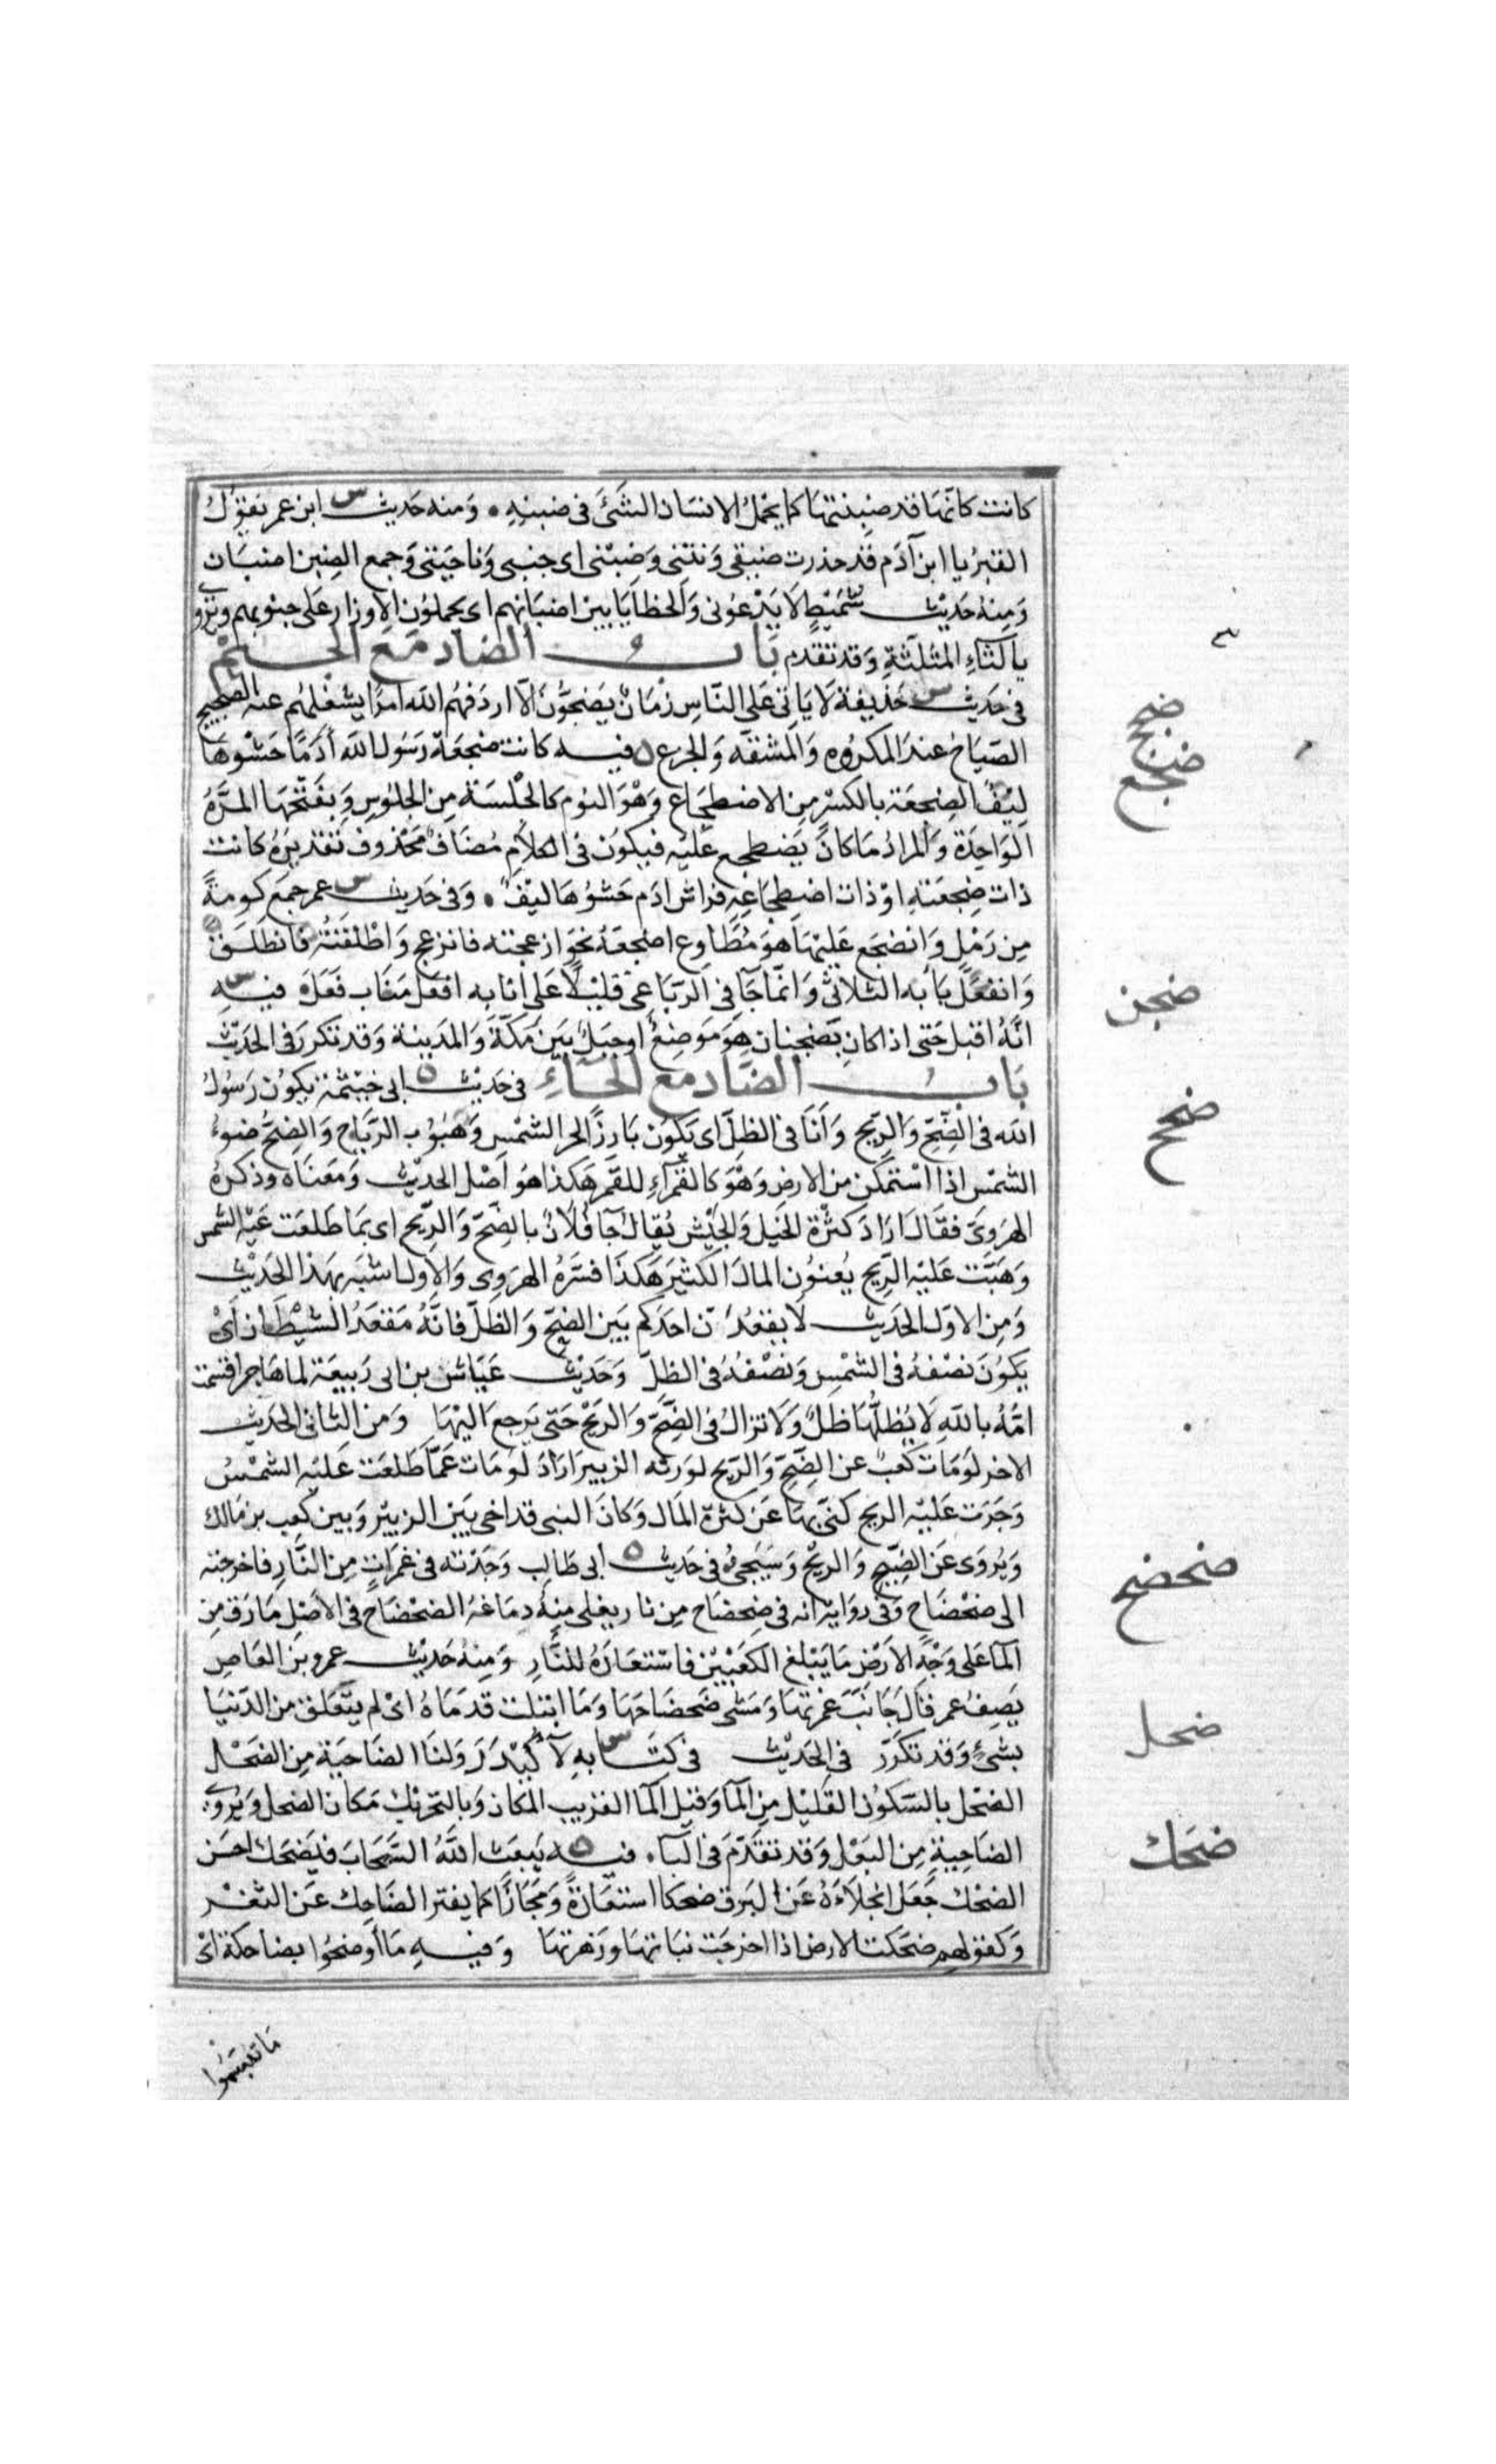 كانت كانّها قد ضبنتها كما يحمل الانسان الشئ في ضبنه ٠ ومنه حديث س ابن عمر يقول
القبر يا ابن آدم قد حذرت ضيقي ونتني وضبني اي جنبي وناحيتي وجمع الضبن اضبان
ومنه حديث شميط لا يدعوني والخطايا بين اضبانهم اي يحملون الاوزار على جنوبهم ويروى
بالثاء المثلثة وقد تقدم باب الضاد مع الجيم
ضجج
في حديث س حذيفة لا ياتي على الناس زمان يضجون الا اردفهم الله امرا يشغلهم عنه الضجيج
ضجع
الصياح عند المكروه والمشقه والجزع ٥ فيه كانت ضجعة رسول الله أدما حشوها
ليف الضجعة بالكسر من الاضطجاع وهو النوم كالجلسة من الجلوس وبفتحها المرة
الواحدة والمراد ما كان يضطجع عليه فيكون في الكلام مضاف محذوف تقديره كانت
ذات ضجعته او ذات اضطجاعه فراش ادم حشوها ليف ٠ وفي حديث س عمر جمع كومة
من رمل وانضجع عليها هو مطاوع اضجعه نحو ازعجته فانزعج واطلقته فانطلق
وانفعل بابه الثلاثي وانما جآ في الرباعي قليلا على انابه افعل مناب فعل ٥ فيه س
ضجن
انه اقبل حتى اذا كان بضجنان هو موضع او جبل بين مكة والمدينة وقد تكرر في الحديث
باب الضاد مع الحاء في حديث ٥ ابي خيثمة يكون رسول
ضحح
الله في الضح والريح وأنا في الظل اي يكون بارزا لحر الشمس وهبوب الرياح والضح ضوء
الشمس اذا استمكن من الارض وهو كالقمرآء للقمر هكذا هو اصل الحديث ومعناه وذكره
الهروي فقال اراد كثرة الخيل والجيش يقال جآ فلان بالضح والريح اي بما طلعت عليه الشمس
وهبت عليه الريح يعنون المال الكثير هكذا فسره الهروي والاول اشبه بهذا الحديث
ومن الاول الحديث لا يقعدن احدكم بين الضح والظل فانه مقعد الشيطان أي
يكون نصفه في الشمس ونصفه في الظل وحديث عياش بن ابي ربيعة لما هاجر اقسمت
امه بالله لا يظلها ظل ولا تزال في الضح والريح حتى يرجع اليها ومن الثاني الحديث
الاخر لو مات كعب عن الضح والريح لورثه الزبير اراد لو مات عما طلعت عليه الشمس
وجرت عليه الريح كنى بهما عن كثرة المال وكان النبي قد اخى بين الزبير وبين كعب بن مالك
ضحضح
ويروى عن الضيح والريح وسيجئ ٥ في حديث ٥ ابي طالب وجدته في غمرات من النار فاخرجته
الى ضحضاح وفي رواية انه في ضحضاح من نار يغلى منه دماغه الضحضاح في الاصل ما رق من
المآ على وجه الارض ما يبلغ الكعبين فاستعاره للنار ومنه حديث عمرو بن العاص
يصف عمر قال جانب غمرتها ومشى ضحضاحها وما ابتلت قدماه اي لم يتعلق من الدنيا
ضحل
بشئ وقد تكرر في الحديث في كتابه س لأكيدر ولنا الضاحية من الضحل
الضحل بالسكون القليل من المآ وقيل المآ القريب المكان وبالتحريك مكان الضحل ويروى
ضحك
الضاحية من البعل وقد تقدم في البآء ٠ فيه ٥ يبعث الله السحاب فيضحك احسن
الضحك جعل انجلاءه عن البرق ضحكا استعارة ومجازا كما يفتر الضاحك عن الثغر
وكقولهم ضحكت الارض اذا اخرجت نباتها وزهرتها وفيه ما أوضحوا بضاحكة اي
ما تبسموا